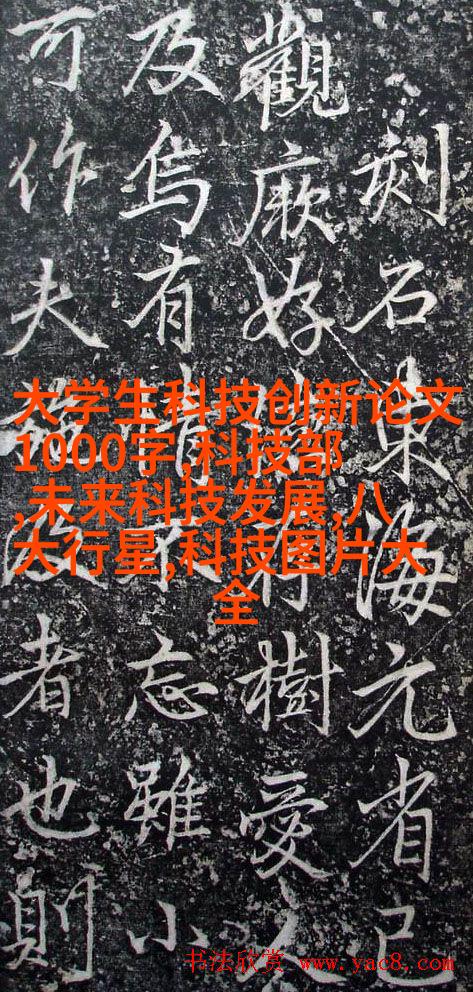 刻石東海元省已
觀厥好樹愛
及焉有忘雖小
可作夫者也則
大学生科技创新论文
1000字,科技部
,未来科技发展,八
大行星,科技图片大
全
书法欣赏 www.yac8.com